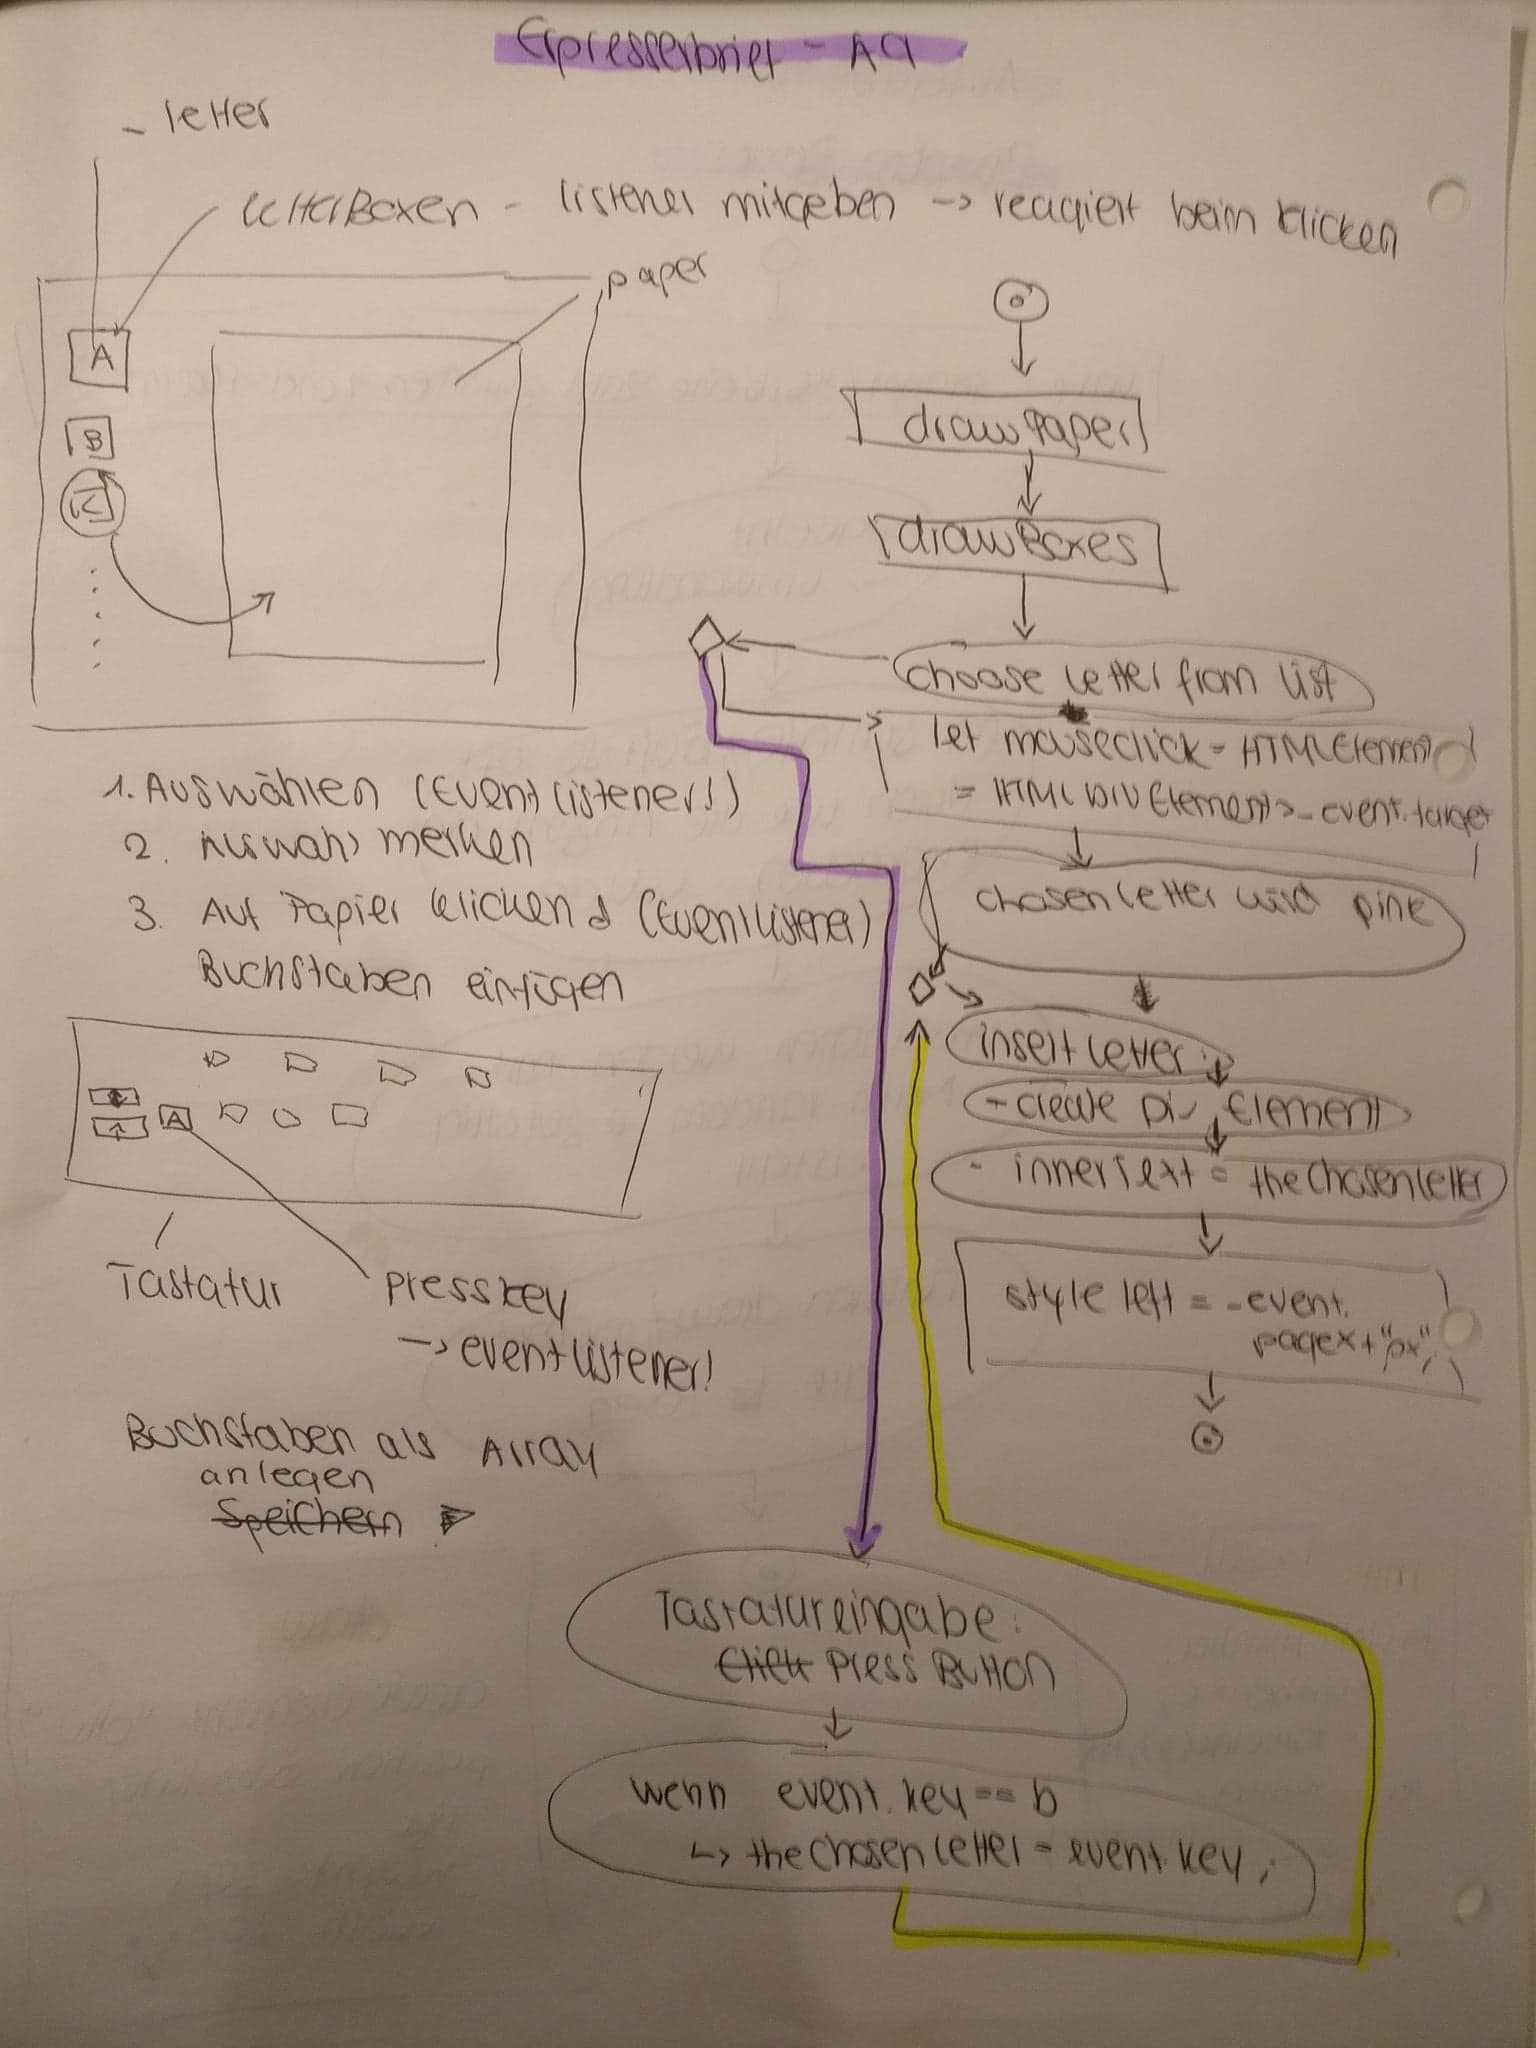 Erpresserbrief - A9
- letter
letterBoxen - listener mitgeben -> reagiert beim klicken
paper
A
B
K
1. Auswählen (Event listener!)
2. Auswahl merken
3. Auf Papier klicken & (Eventlistener)
Buchstaben einfügen
A
Tastatur
presskey
-> eventlistener!
Buchstaben als Array
anlegen
Speichern
drawPaper
drawBoxes
choose letter from list
let mouseclick = HTMLElement
= HTMLDivElement>_event.target
chosenletter wird pink
insertletter:
- create Div Element
- innerText = thechosenletter
style left = _event.
pagex+"px";
Tastatureingabe:
Click Press Button
wenn event.key == b
↳ thechosenletter = event.key;